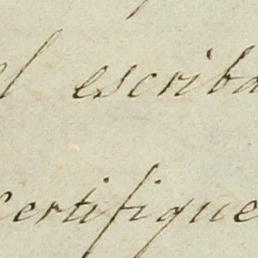 el escriba
certifique